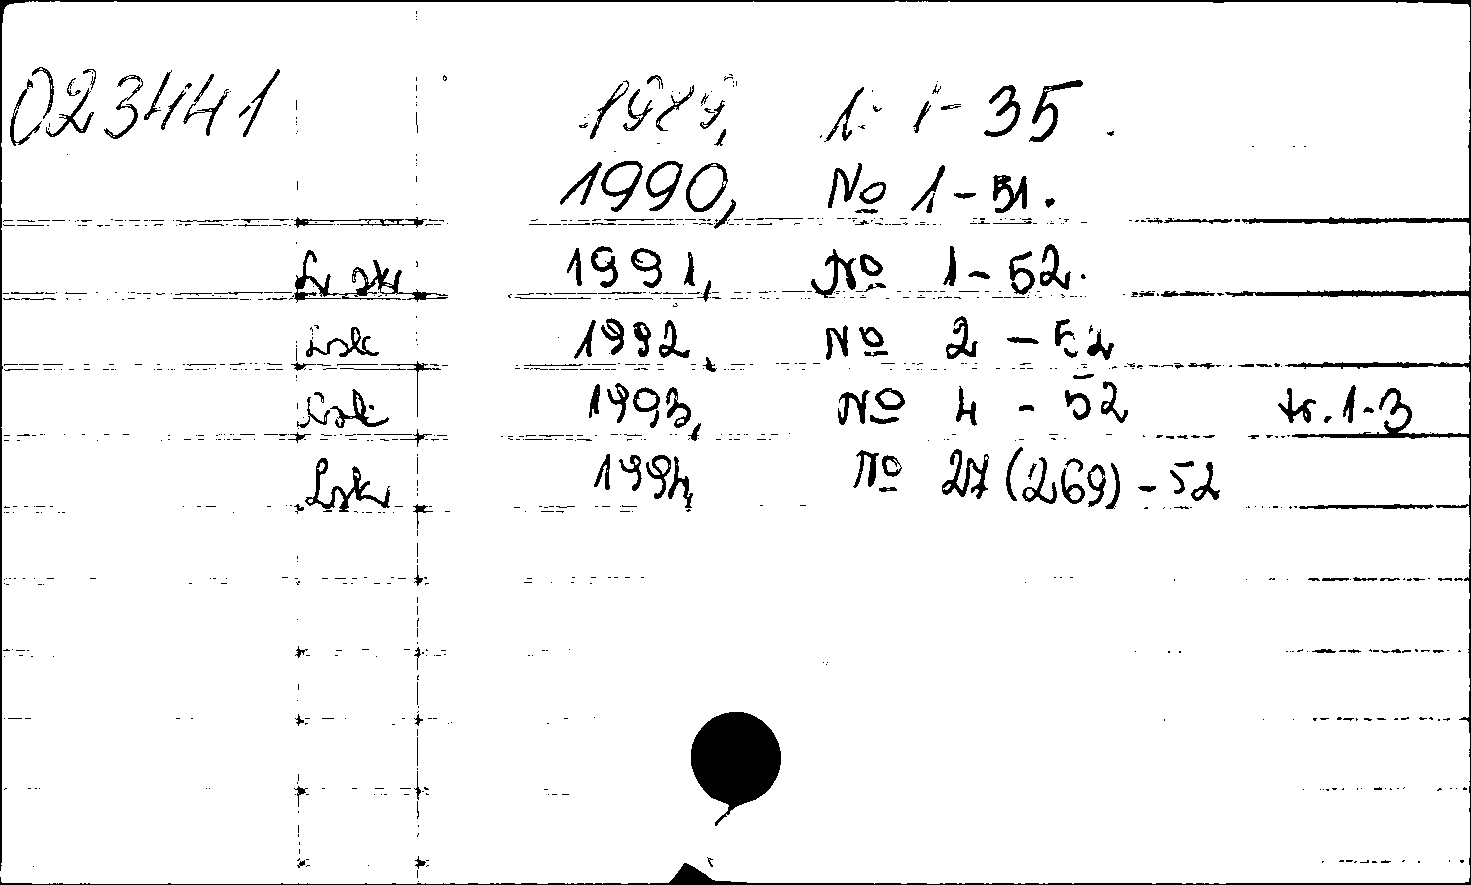 023441 1989, 1-35.
1990, № 1-51.
1991, № 1-52.
Lsk 1992, № 2-52
Lsk 1993, № 4-52 tr. 1-3
Lsk 1994, № 27(269)-52